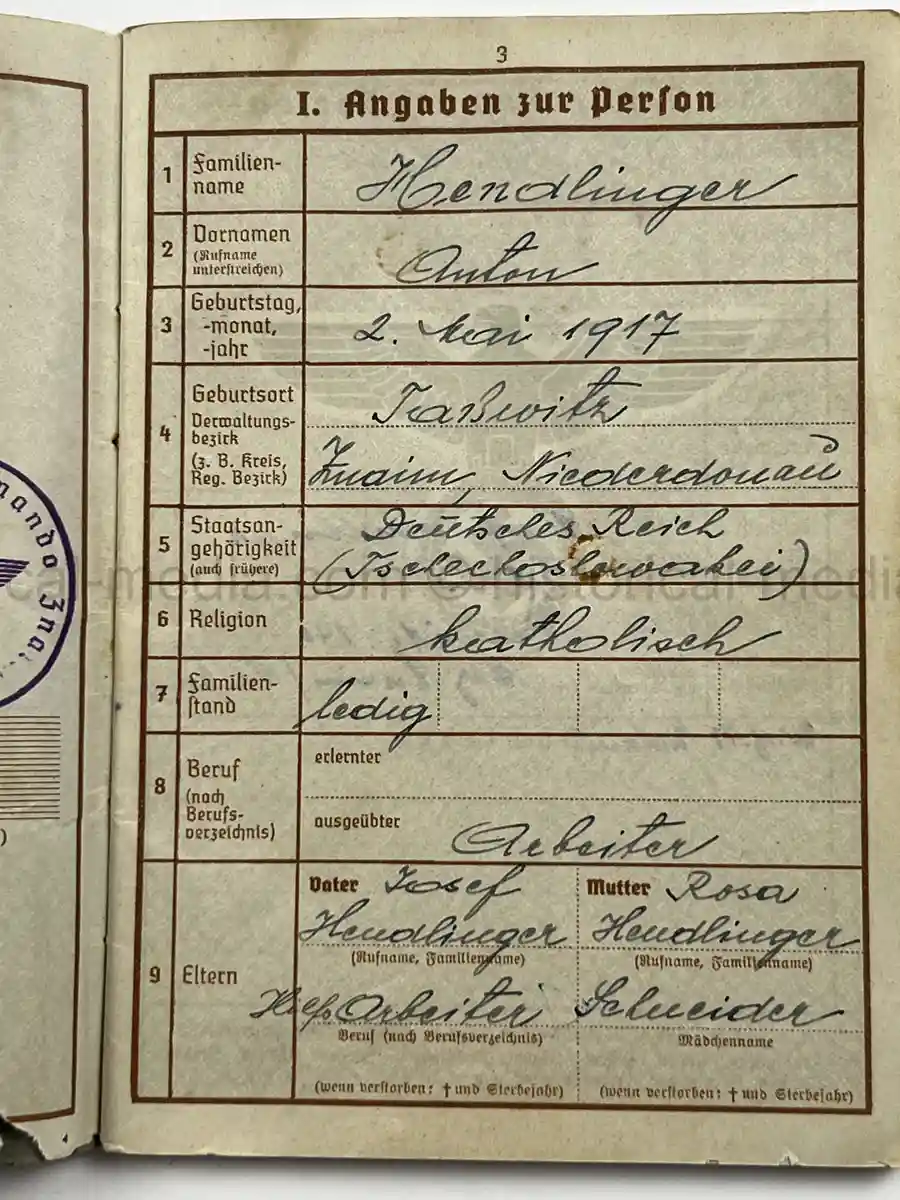 3
I. Angaben zur Person
1 Familien-
name
Hendlinger
2 Vornamen
(Rufname
unterstreichen)
Anton
3 Geburtstag,
-monat,
-jahr
2. Mai 1917
4 Geburtsort
Verwaltungs-
bezirk
(z. B. Kreis,
Reg. Bezirk)
Taßwitz
Znaim, Niederdonau
5 Staatsan-
gehörigkeit
(auch frühere)
Deutsches Reich
(Tschechoslowakei)
6 Religion
katholisch
7 Familien-
stand
ledig
8 Beruf
(nach
Berufs-
verzeichnis)
erlernter
ausgeübter
Arbeiter
9 Eltern
Vater Josef
Hendlinger
(Rufname, Familienname)
Hilfs Arbeiter
Beruf (nach Berufsverzeichnis)
(wenn verstorben: † und Sterbejahr)
Mutter Rosa
Hendlinger
(Rufname, Familienname)
Schneider
Mädchenname
(wenn verstorben: † und Sterbejahr)
mando Znai
)
4
historical-media